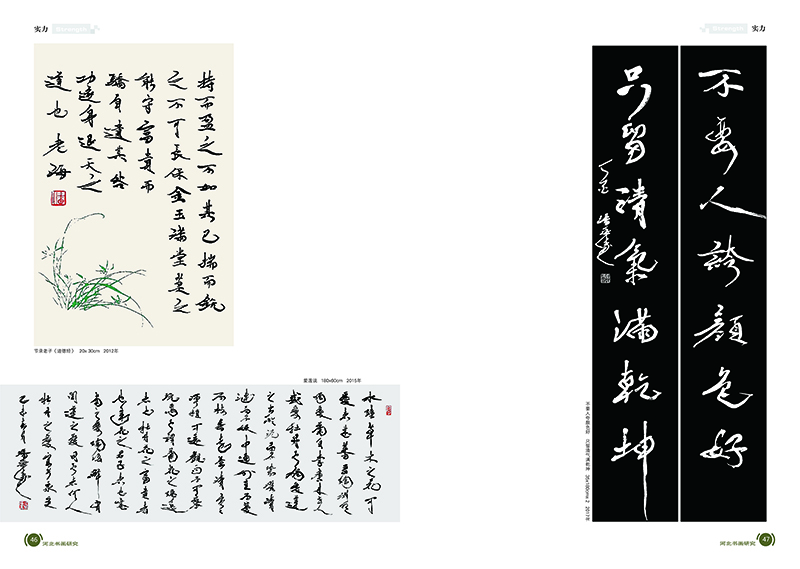 实力 Strength
持而盈之不如其已揣而銳
之不可長保金玉滿堂莫之
能守富貴而
驕自遺其咎
功遂身退天之
道也
节录老子《道德经》 20x30cm 2012年
爱莲说 180x60cm 2015年
水陸草木之花可
愛者甚蕃晉陶淵明
獨愛菊自李唐來世人
甚愛牡丹予獨愛蓮
之出淤泥而不染濯清
漣而不妖中通外直不蔓
不枝香遠益清亭亭
淨植可遠觀而不可褻
玩焉予謂菊花之隱逸
者也牡丹花之富貴者
也蓮花之君子者也噫
菊之愛陶後鮮有
聞蓮之愛同予者何人
牡丹之愛宜乎衆矣
46 河北书画研究
Strength 实力
不要人誇顏色好
只留清氣滿乾坤
不要人夸颜色好 只留清气满乾坤 2017年
河北书画研究 47